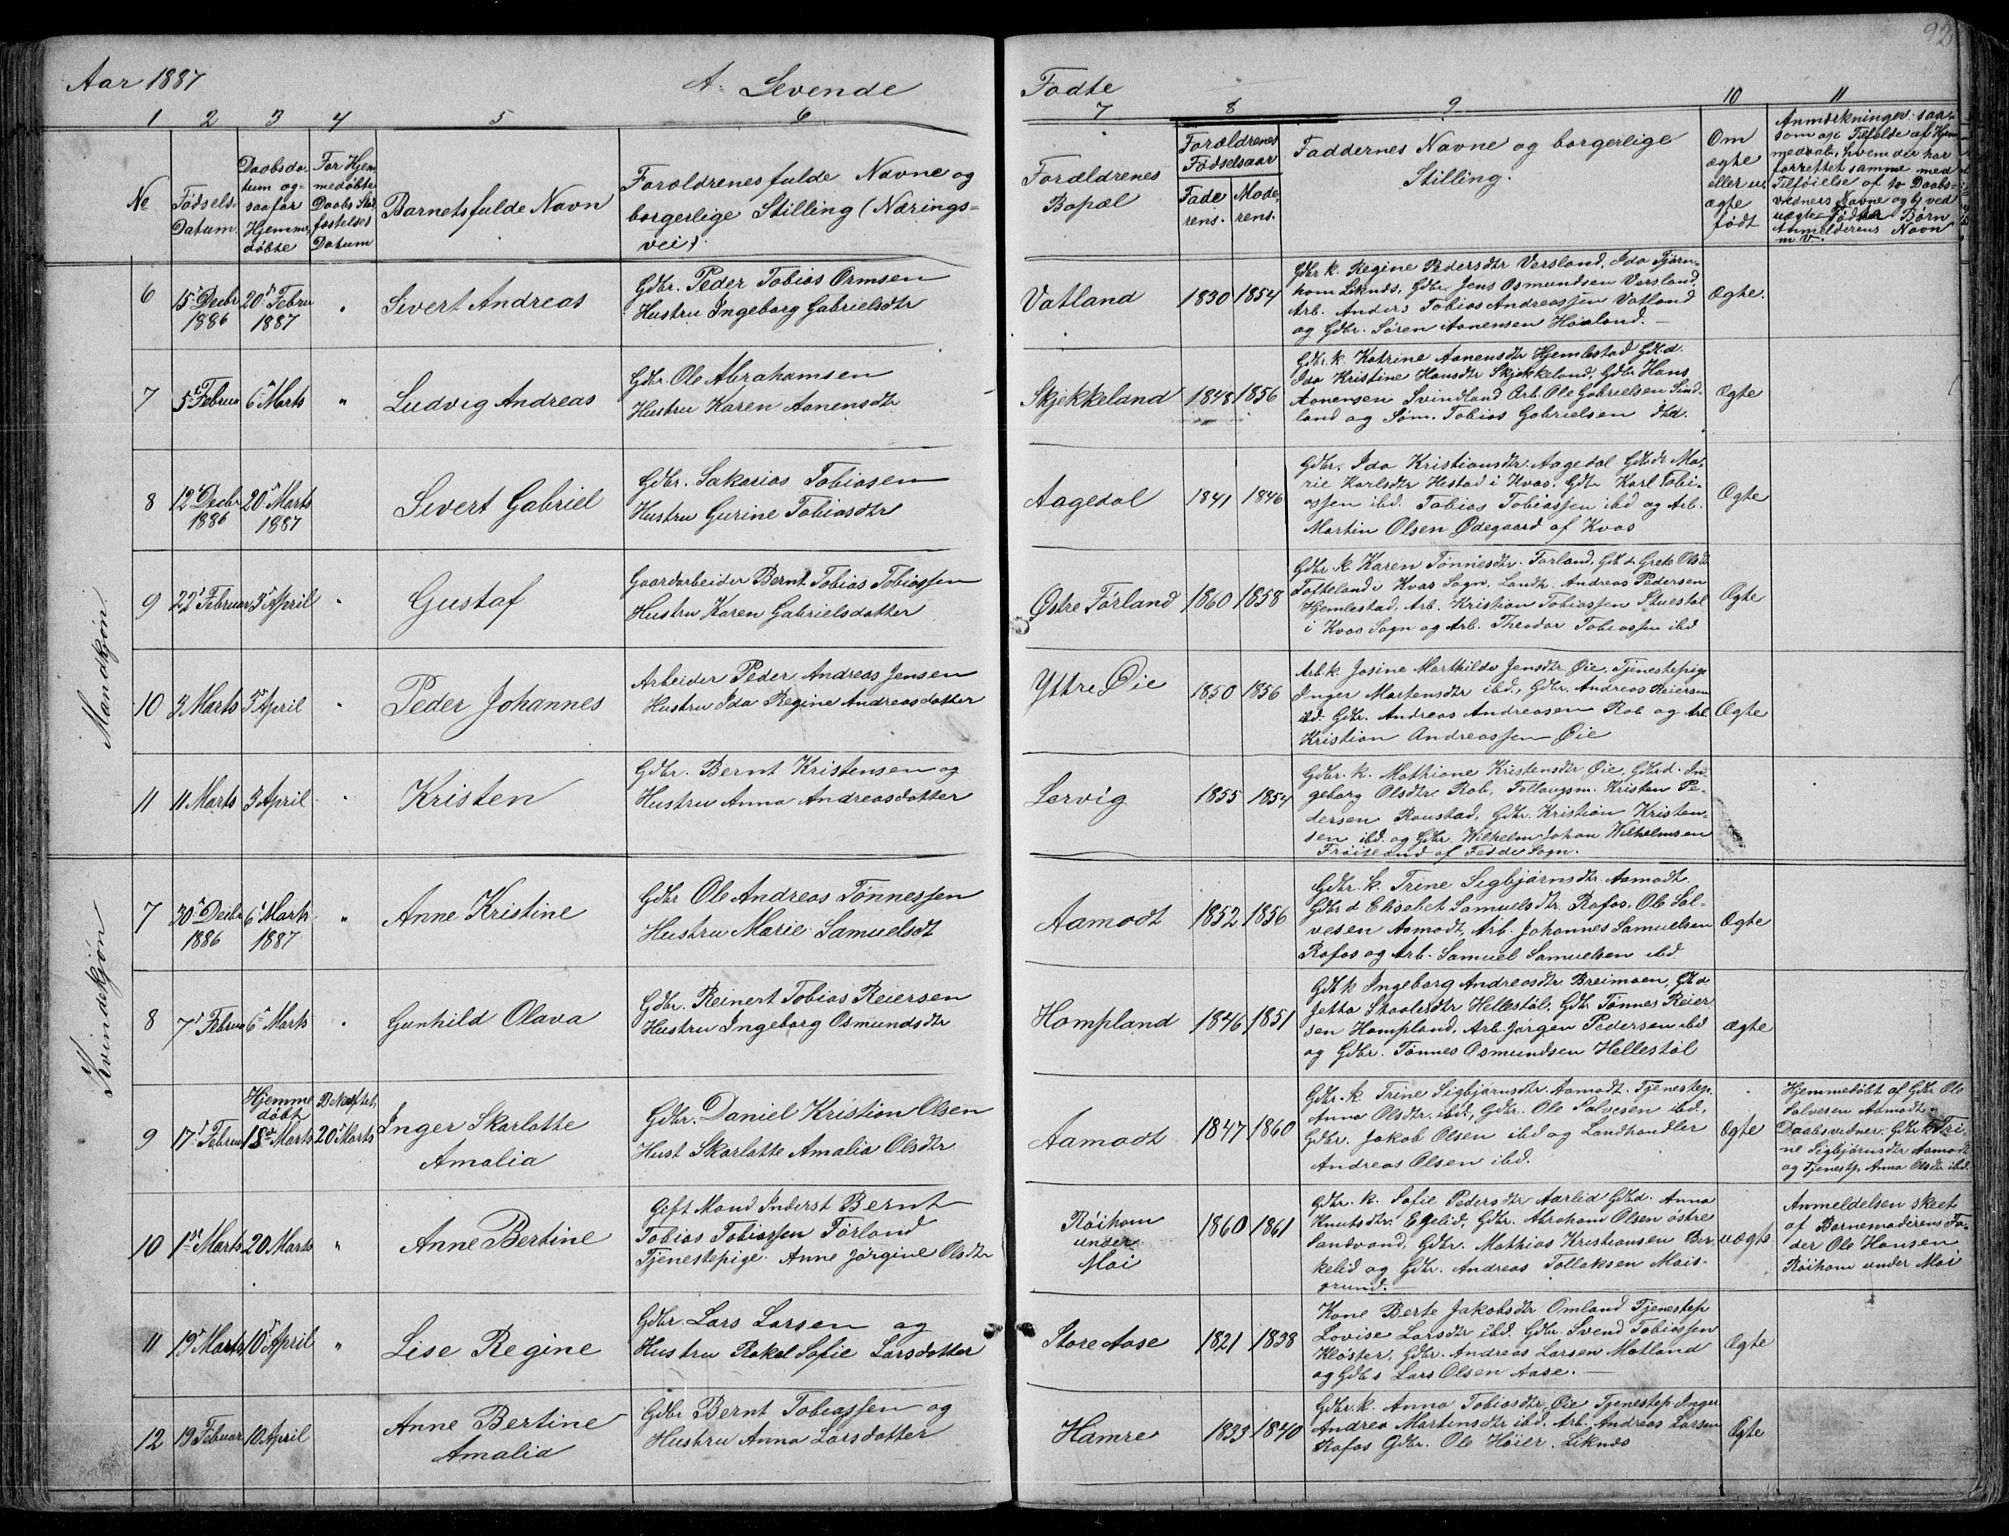 92
Aar 1887
A. Levende
Fødte
1 2 3 4 5 6 7 8 9 10 11
No
Fødsels-
Datum
Daabsda-
tum og-
saa for
Hjemme-
døbte
For Hjem-
medøbte
Daabs Stad-
festelses
Datum
Barnets fulde Navn
Forældrenes fulde Navne og
borgerlige Stilling (Nærings-
vei).
Forældrenes
Bopæl
Forældrenes
Fødselsaar
Fade-
rens.
Mode-
rens.
Faddernes Navne og borgerlige
Stilling.
Om
ægte
eller u-
ægte
født
Anmærkninger, saa-
som og i Tilfælde af Hjem-
medaab, hvem der har
forrettet samme med
Tilføielse af to Daabs-
vidners Navne og ved
uægte Fødte Børn
Anmelderens Navn
m v.
Mandkjøn
6
15de Decbr
1886
20de Febru
1887
"
Sivert Andreas
Gdbr. Peder Tobias Ormsen
Hustru Ingeborg Gabrielsdtr
Vatland
1830
1854
Gdbr k. Regine Pedersdtr Versland, Ida Tjørn-
hom Liknes, Gdbr Jens Osmundsen Versland,
Arb. Anders Tobias Andreassen Vatland
og Gdbr. Søren Aanensen Haaland.
Ægte.
7
5 Februa
6 Marts
"
Ludvig Andreas
Gdbr. Ole Abrahamsen
Hustru Karen Aanensdtr
Skjekkeland
1848
1856
Gdbr. k. Katrine Aanensdtr Hjemlestad Gdb. d.
Ida Kristine Hansdtr Skjekkeland, Gdbr Hans
Aanensen Svindland Arb. Ole Gabrielsen Sind-
land og Søm. Tobias Gabrielsen ibd.
Ægte
8
12 Decbr
1886
20 Marts
1887
Sivert Gabriel
Gdbr. Sakarias Tobiasen
Hustru Gurine Tobiasdtr
Aagedal
1841
1846
Gdbr. Ida Kristiansdtr. Aagedal Gdb d. Ma-
rie Karlsdtr Hestad i Kvas, Gdbr Karl Tobi-
assen ibd. Tobias Tobiassen ibd og Arb.
Martin Olsen Ødegaard af Kvas
Ægte
9
22 Februar
3 April
"
Gustaf
Gaardarbeider Bernt Tobias Tobiassen
Hustru Karen Gabrielsdatter
Østre Førland
1860
1858
Gdbr k Karen Tønnesdtr. Førland, Gdb d Grete Olsd
Tofteland i Kvas Sogn, Landh. Andreas Pedersen
Hjemlestad, Arb. Kristian Tobiassen Stuestøl
i Kvas Sogn og Arb. Theodor Tobiassen ibd
Ægte
10
3 Marts
3 April
"
Peder Johannes
Arbeider Peder Andreas Jensen
Hustru Ida Regine Andreasdatter
Yttre Øie
1850
1856
Arb. k. Josine Marthilde Jensdtr Øie, Tjenestepige
Inger Martensdtr ibd, Gdbr. Andreas Reiersen
ibd. Gdbr. Andreas Andreasen Rob og Arb
Kristian Andreassen Øie
Ægte
11
11 Marts
3 April
"
Kristen
Gdbr. Bernt Kristensen og
Hustru Anna Andreasdatter
Lervig
1855
1854
Gdbr. k. Mathione Kristensdtr Øie, Gdbr d. In-
geborg Olsdtr Rob, Kristen Pe-
dersen Roustad, Gdbr. Kristian Kristen-
sen ibd. og Gdbr. Wilhelm Johan Wilhelmsen
Frøiseland af Fedde Sogn.
Kvindekjøn
7
30 Decbr
1886
6 Marts
1887
"
Anne Kristine
Gdbr Ole Andreas Tønnessen
Hustru Marie Samuelsdt
Aamodt
1852
1856
Gdbr. k. Trine Sigbjørnsdtr. Aamodt,
Gdbr d Elisabet Samuelsdtr. Rafos, Ole Sal-
vesen Aamodt, Arb. Johannes Samuelsen
Rafos og Arb. Samuel Samuelsen ibd.
Ægte
8
7 Februa
6 Marts
"
Gunhild Olava
Gdbr. Reinert Tobias Reiersen
Hustru Ingeborg Osmundsdtr
Hompland
1846
1851
Gdb k Ingeborg Andreasdtr Breimoen, Gdb d
Jetta Staalesdtr Hellestøl, Gdbr Tønnes Reier-
sen Hompland, Arb. Jørgen Pedersen ibd
og Gdbr. Tønnes Osmundsen Hellestøl
ægte
9
17 Februa
Hjemme
døbt
18de Marts
20 Marts
Inger Skarlotte
Amalia
Gdbr. Daniel Kristian Olsen
Hust Skarlotte Amalia Olsdtr.
Aamodt
1847
1860
Gdbr. k. Trine Sigbjørnsdtr. Aamodt. Tjenestep.
Anna Olsdtr. ibd, Gdbr. Ole Salvesen ibd,
Gdbr. Jakob Olsen ibd og Landhandler
Andreas Olsen ibd.
Ægte
Hjemmedøbt af Gdbr Ole
Salvesen Aamodt.
Daabsvidner: Gdbr k Tri-
ne Sigbjørnsdtr Aamodt
og Tjenestep. Anna Olsdtr ibd.
10
1ste Marts
20 Marts
"
Anne Bertine
Gift Mand Inderst Bernt
Tobias Tobiassen Førland
Tjenestepige Anne Jørgine Olsdtr
Røihom
under
Moi
1860
1861
Gdbr. k. Sofie Pedersdtr Aarlid Gdbd. Anna
Knutsdtr. Egelid, Gdbr. Abraham Olsen østre
Sandvand, Gdbr. Mathias Kristiansen Bir-
kelid og Gdbr. Andreas Tollaksen Mois-
grund.
uægte
Anmeldelsen skeet
af Barnemoderens Fa-
der Ole Hansen
Røihom under Moi
11
19 Marts
10 April
"
Lise Regine
Gdbr. Lars Larsen og
Hustru Rakel Sofie Larsdatter
Store Aase
1821
1838
Kone Berte Jakobsdtr Omland Tjenestep
Lovise Larsdtr ibd. Gdbr. Svend Tobiassen
Kløster, Gdbr. Andreas Larsen Motland
og Gdbs Lars Olsen Aase.
Ægte
12
19 Februar
10 April
Anne Bertine
Amalia
Gdbr Bernt Tobiassen og
Hustru Anna Larsdatter
Hamre
1833
1840
Gdbr. k. Anna Tobiasdtr Øie Tjenestep Inger
Andrea Martinsdtr ibd. Arb. Andreas Larsen
Rafos Gdbr. Ole Høier. Liknes
Ægte